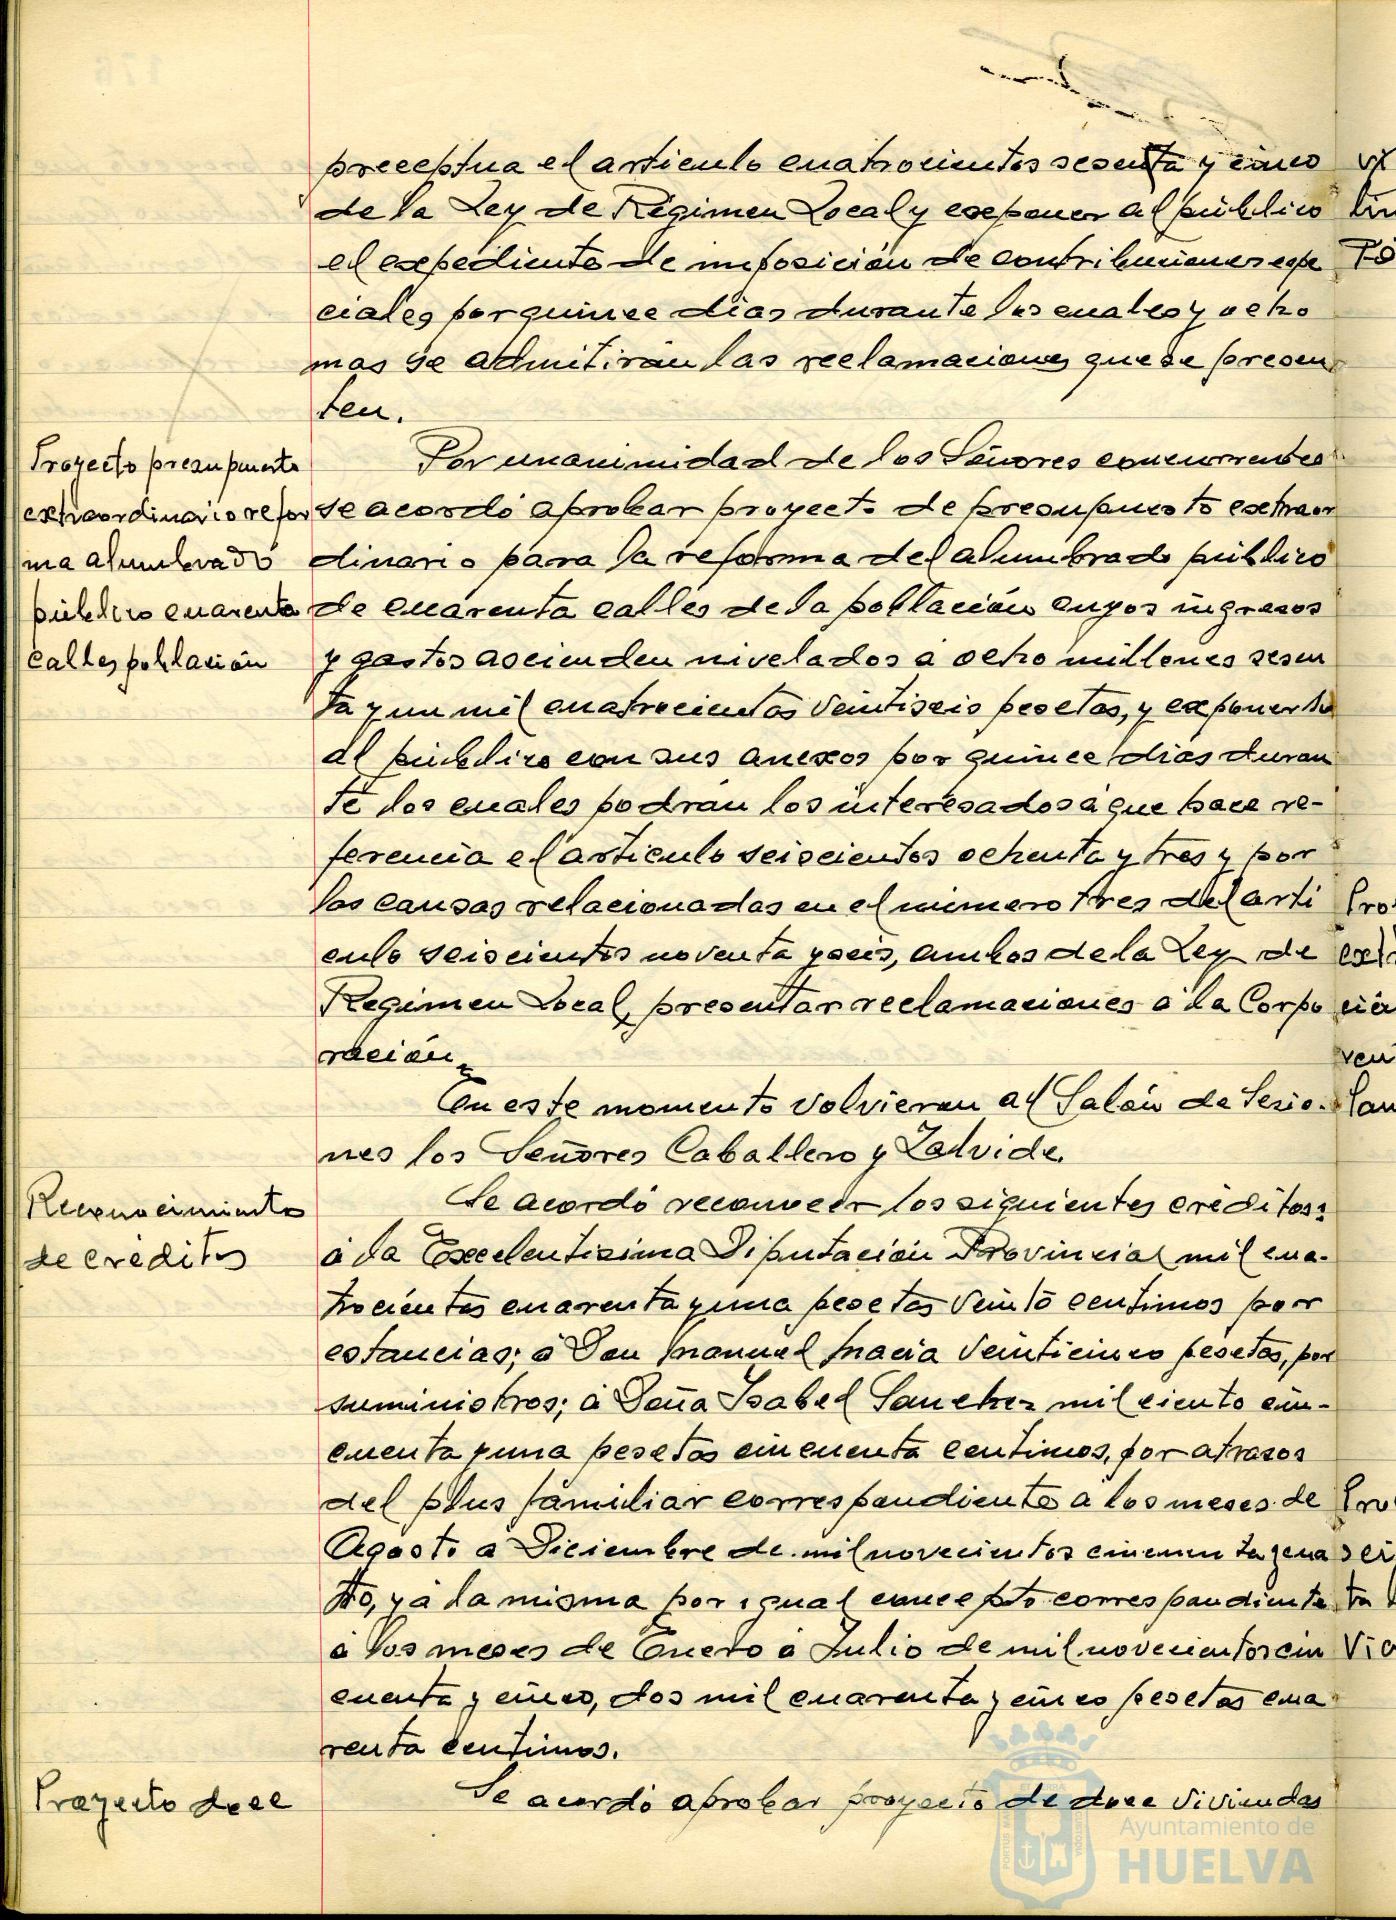 preceptua el articulo cuatrocientos sesenta y cinco
de la Ley de Régimen Local y exponer al público
el expediente de imposición de contribuciones espe
ciales por quince dias durante los cuales y ocho
mas se admitirán las reclamaciones que se presen
ten.
Proyecto presupuesto
extraordinario refor
ma alumbrado
público cuarenta
calles población
Por unanimidad de los Señores concurrentes
se acordó aprobar proyecto de presupuesto extraor
dinario para la reforma del alumbrado público
de cuarenta calles de la población cuyos ingresos
y gastos ascienden nivelados a ocho millones sesen
ta y un mil cuatrocientas veintiseis pesetas, y exponerlo
al público con sus anexos por quince dias duran
te los cuales podrán los interesados á que hace re-
ferencia el articulo seiscientos ochenta y tres y por
las causas relacionadas en el número tres del arti
culo seiscientos noventa y seis, ambos de la Ley de
Regimen Local, presentar reclamaciones a la Corpo
ración.
En este momento volvieron al Salón de Sesio-
nes los Señores Caballero y Zalvide.
Reconocimiento
de créditos
Se acordó reconocer los siguientes créditos:
á la Excelentisima Diputación Provincial mil cua-
trocientas cuarenta y una pesetas veinte centimos por
estancias; á Don Manuel Macia veinticinco pesetas, por
suministros; á Doña Isabel Sanchez mil ciento cin-
cuenta y una pesetas cincuenta centimos, por atrasos
del plus familiar correspondiente a los meses de
Agosto a Diciembre de mil novecientos cincuenta y cua
tro, y á la misma por igual concepto correspondiente
á los meses de Enero a Julio de mil novecientos cin
cuenta y cinco, dos mil cuarenta y cinco pesetas cua
renta centimos.
Proyecto doce
Se acordó aprobar proyecto de doce viviendas
Ayuntamiento de
HUELVA